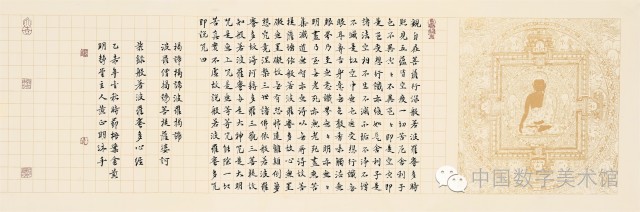 觀自在菩薩行深般若波羅蜜多時
照見五蘊皆空度一切苦厄舍利子
色不異空空不異色色即是空空即
是色受想行識亦復如是舍利子是
諸法空相不生不滅不垢不淨不增
不減是故空中無色無受想行識無
眼耳鼻舌身意無色聲香味觸法無
眼界乃至無意識界無無明亦無無
明盡乃至無老死亦無老死盡無苦
集滅道無智亦無得以無所得故菩
提薩埵依般若波羅蜜多故心無罣
礙無罣礙故無有恐怖遠離顛倒夢
想究竟涅槃三世諸佛依般若波羅
蜜多故得阿耨多羅三藐三菩提故
知般若波羅蜜多是大神咒是大明
咒是無上咒是無等等咒能除一切
苦真實不虛故說般若波羅蜜多咒
即說咒曰
揭諦揭諦波羅揭諦
波羅僧揭諦菩提薩婆訶
般若波羅蜜多心經
主人黃正明沐手
中国数字美术馆